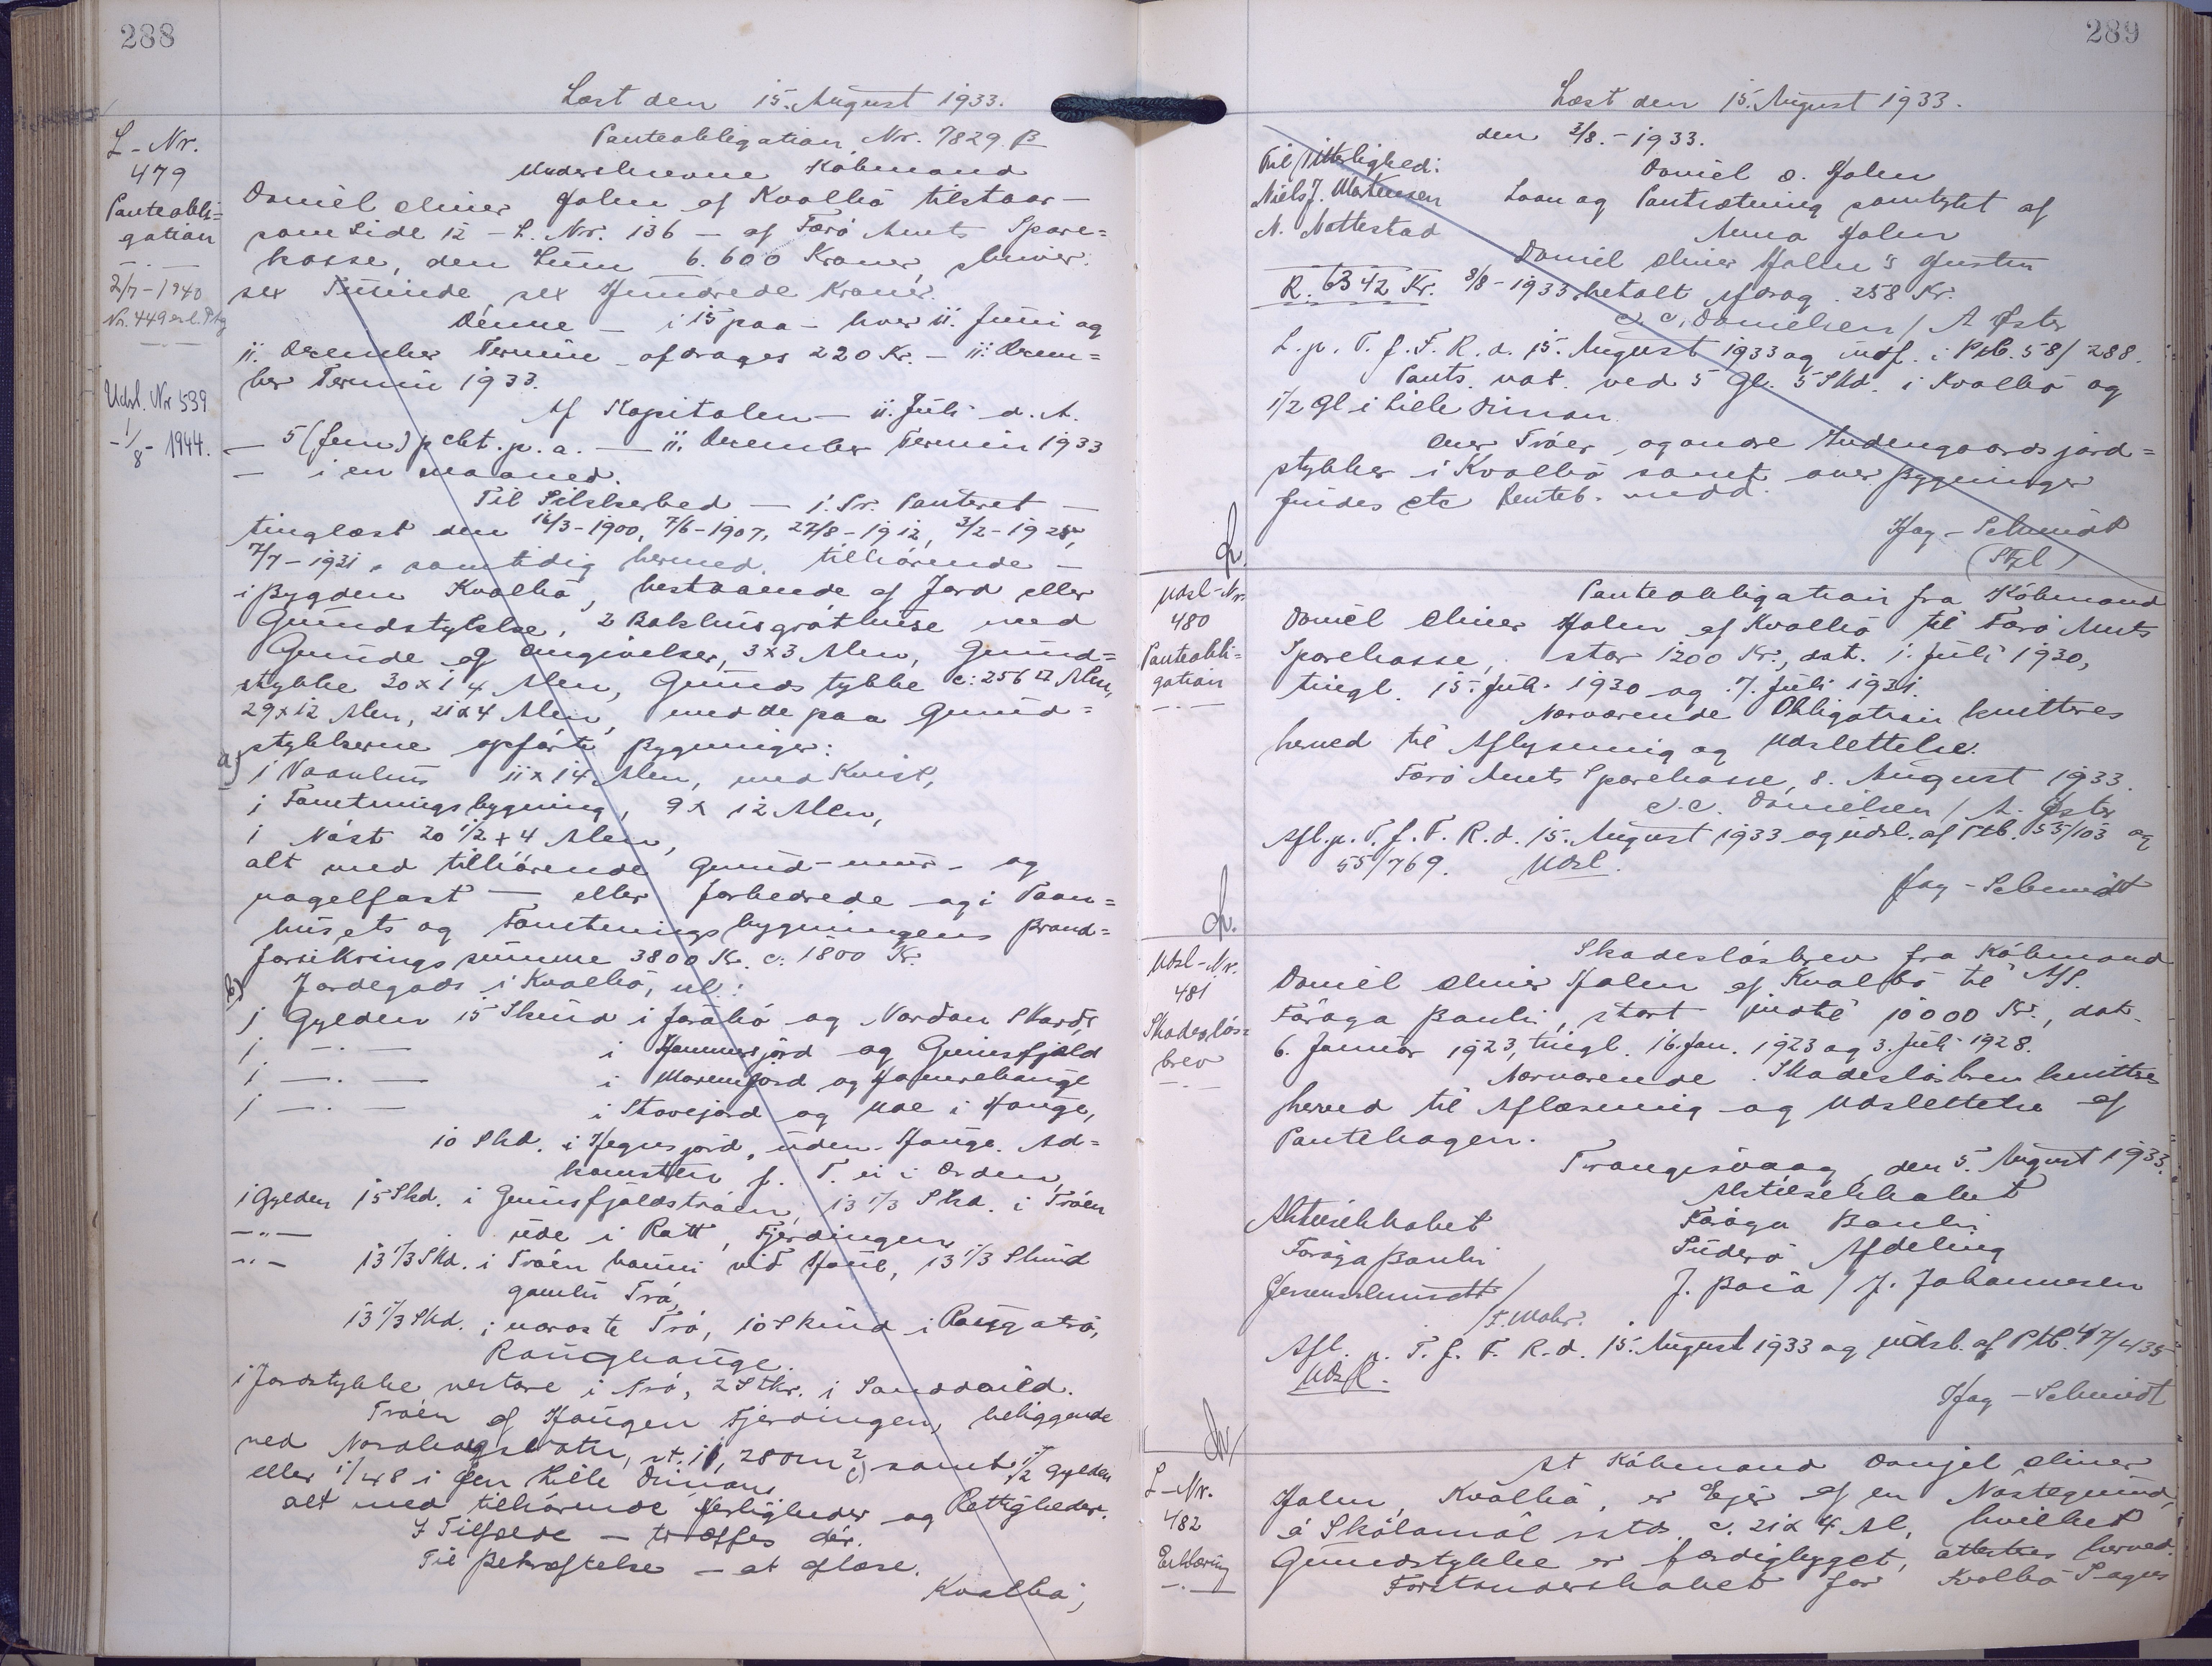 288
Læst den 15. August 1933.
L - Nr.
479
Panteobli=
gation
2/7 - 1940
Nr. 449
Udsl. Nr 539
- 1/8 - 1944.
Panteobligation Nr. 7829 B
Underskrevne Købmand
Daniel Oliver Holm af Kvalbø tilstaar —
som Side 12 - L. Nr. 136 — af Færø Amts Spare=
kasse, den Sum 6.600 Kroner, skriver:
sex Tusinde sex Hundrede Kroner.
Denne — i 15 paa — hver 11. Juni og
11. December Termin afdrages 220 Kr. — 11. Decem=
ber Termin 1933.
Af Kapitalen — 11. Juli d. A.
— 5 (fem) pCt. p. a. — 11. December Termin 1933
— i en Maaned.
Til Sikkerhed — 1. Pr. Panteret —
tinglæst den 16/3-1900, 7/6-1907, 27/8-1912, 3/2-1925,
7/7-1931, samtidig hermed, tilhørende —
i Bygden Kvalbø, bestaaende af Jord eller
Grundstykke, 2 Bakhúsgróthúse med
Grunde og Omgivelser, 3x3 Alen, Grund=
stykke 30x14 Alen, Grundstykke c: 256 □ Alen,
29x12 Alen, 21x4 Alen, med de paa Grund=
stykkerne opførte Bygninger:
a) 1 Vaanhus 11x14 Alen, med Kvist,
1 Forretningsbygning, 9x12 Alen,
1 Nøst 20 1/2 x 4 Alen,
alt med tilhørende Grund- mur- og
nagelfast — eller forbedrede og i Vaan=
husets og Forretningsbygningens Brand=
forsikringssumme 3800 Kr. c. 1800 Kr.
b) Jordegods i Kvalbø, nl.:
1 Gylden 15 Skind i Jørabø og Nordan Skard,
1 — . — i Hammersjord og Grimsfjæld
1 — . — i Morensjord og Hamrehauge
1 — . — i Stovejord og Ude i Hauge,
10 Skd. i Hegnsjord, uden Hauge. Ad=
komsten p. T. ei i Orden,
1 Gylden 15 Skd. i Grimsfjældstraen, 13 1/3 Skd. i Trøen
— " — ude i Rætt, Fjerdingen
— " — 13 1/3 Skd. i Trøen hanni vid Hauge, 13 1/3 Skind
gamlu Trø,
13 1/3 Skd. i næraste Trø, 10 Skind i Rayggatrø,
Raughauge.
1 Jordstykke vestare i Trø, 2 Stkr. i Sanddaild.
Trøen af Haugen Fjerdingen, beliggende
ved Nordhagsvatn, st. 11,280 m² c) samt 1/2 Gylden
eller 1/48 i den Lille Dimon,
alt med tilhørende Herligheder og Rettigheder.
I Tilfælde — træffes dér.
Til Bekræftelse — at aflæse.
Kvalbø,
289
Læst den 15. August 1933.
den 3/8. - 1933.
Til Vitterlighed:
Daniel O. Holm
Niels J. Mortensen
Laan og Pantsætning samtykt af
N. Nattestad
Anna Holm
Daniel Oliver Holm's Hustru
R. 6342 Kr. 8/8-1933 betalt Afdrag 258 Kr.
J. C. Danielsen / A Øster
L. p. T. f. F. R. d. 15. August 1933 og indf. i Ptb. 58/288.
Pants. not. ved 5 Gl. 5 Skd. i Kvalbø og
1/2 Gl. i Lille Dimon.
Over Trøer, og andre Undengaards jord=
stykker i Kvalbø samt over Bygninger
findes etc Panteb. medd.
Hag - Schmidt
(Stpl)
Udsl - Nr.
480
Panteobli=
gation
Panteobligation fra Købmand
Daniel Oliver Holm af Kvalbø til Færø Amts
Sparekasse, stor 1200 Kr., dat. 1. Juli 1930,
tingl. 15. Juli 1930 og 7. Juli 1931.
Nærværende Obligation kvitteres
herved til Aflysning og Udslettelse.
Færø Amts Sparekasse, 8. August 1933.
J. C. Danielsen / A. Øster
Afl. p. T. f. F. R. d. 15. August 1933 og udsl. af Ptb. 55/103 og
55/769. Udsl.
Hag - Schmidt
Udsl - Nr.
481
Skadesløs=
brev
Skadesløsbrev fra Købmand
Daniel Oliver Holm af Kvalbø til A/S.
Føroya Banki, stort indtil 10000 Kr., dat.
6. Januar 1923, tingl. 16. Jan. 1923 og 3. Juli 1928.
Nærværende Skadesløsbrev kvitteres
herved til Aflæsning og Udslettelse af
Pantebogen.
Trangisvaag, den 5. August 1933.
Aktieselskabet
Aktieselskabet
Føroya Banki
Føroya Banki
Suderø Afdeling
J. Poia / J. Johannesen
/ T. Mohr.
Afl. p. T. f. F. R. d. 15. August 1933 og udsl. af Ptb. 47/435
Udsl.
Hag - Schmidt
L - Nr.
482
Erklæring
At Købmand Danjel Oliver
Holm, Kvalbø, er Ejer af en Nøstegrund
á Skálamøl c. 21x4 Al, hvilket
Grundstykke er færdigbygget, attesteres herved.
Forstanderskabet for Kvalbø Sogns